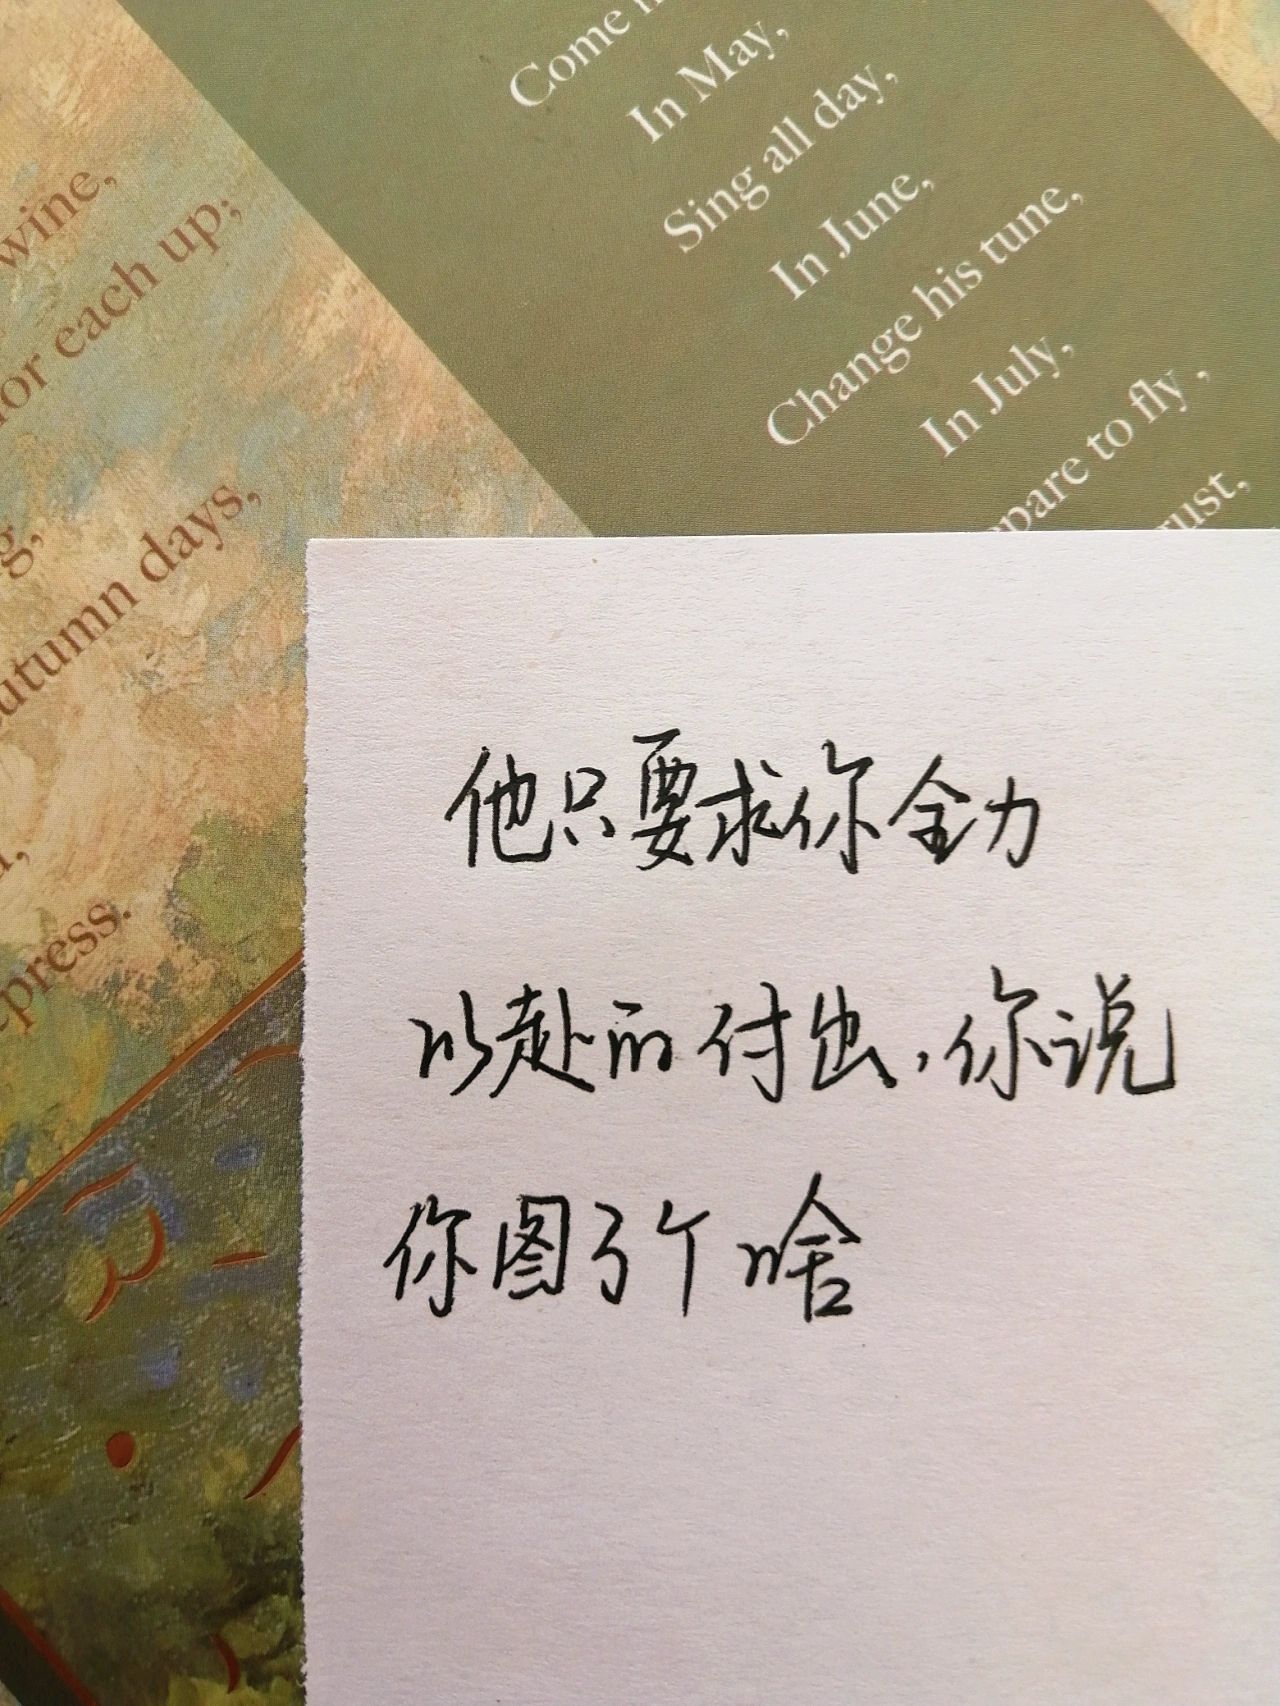 Come
In May,
Sing all day,
In June,
Change his tune,
In July,
pare to fly ,
rust,
wine,
for each up;
g,
utumn days,
press.
他只要求你全力
以赴的付出,你说
你图了个啥